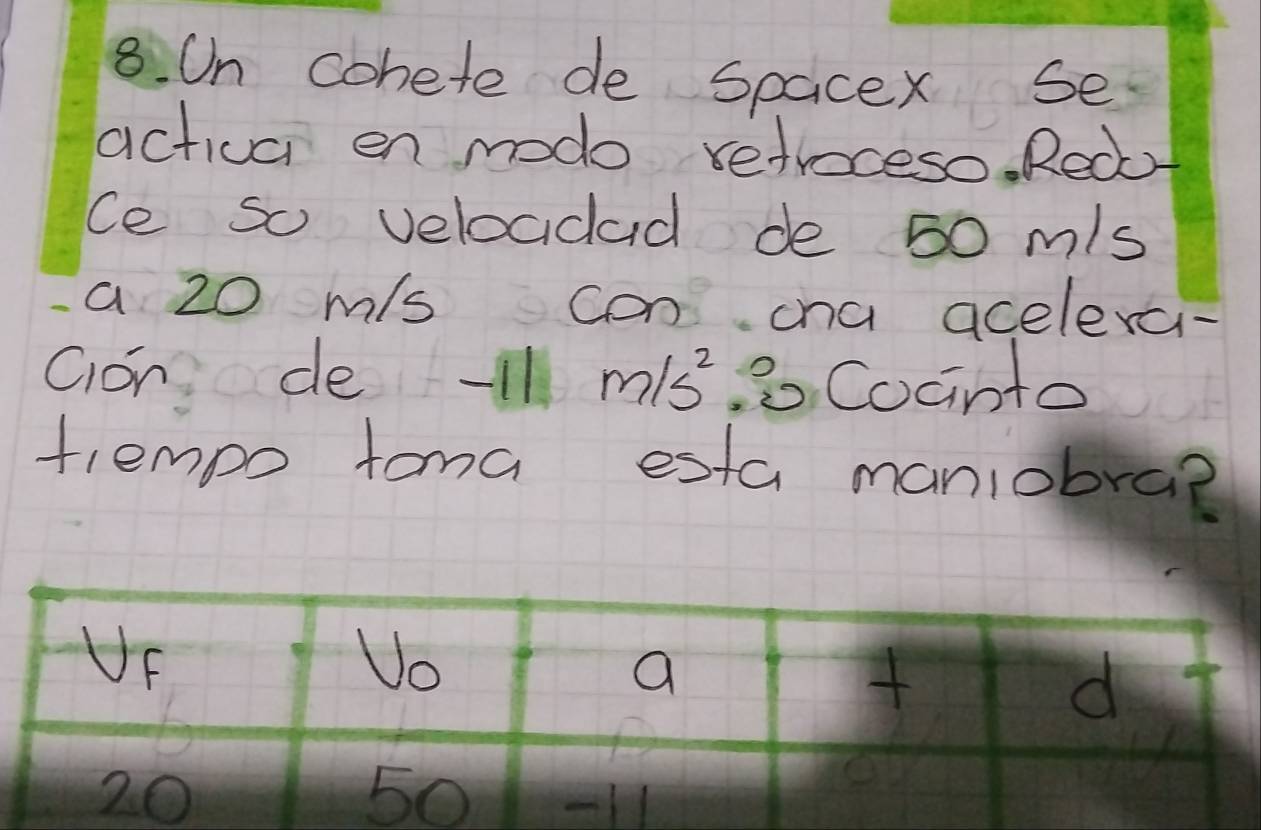 8. Un cohete de Spacex se
activa en modo retroceso. Redu-
ce su velocidad de 50 m/s
a 20 m/s con una acelera-
ción de -11 m/s². ¿Cuánto
tiempo toma esta maniobra?
VF Vo a t d
20 50 -11